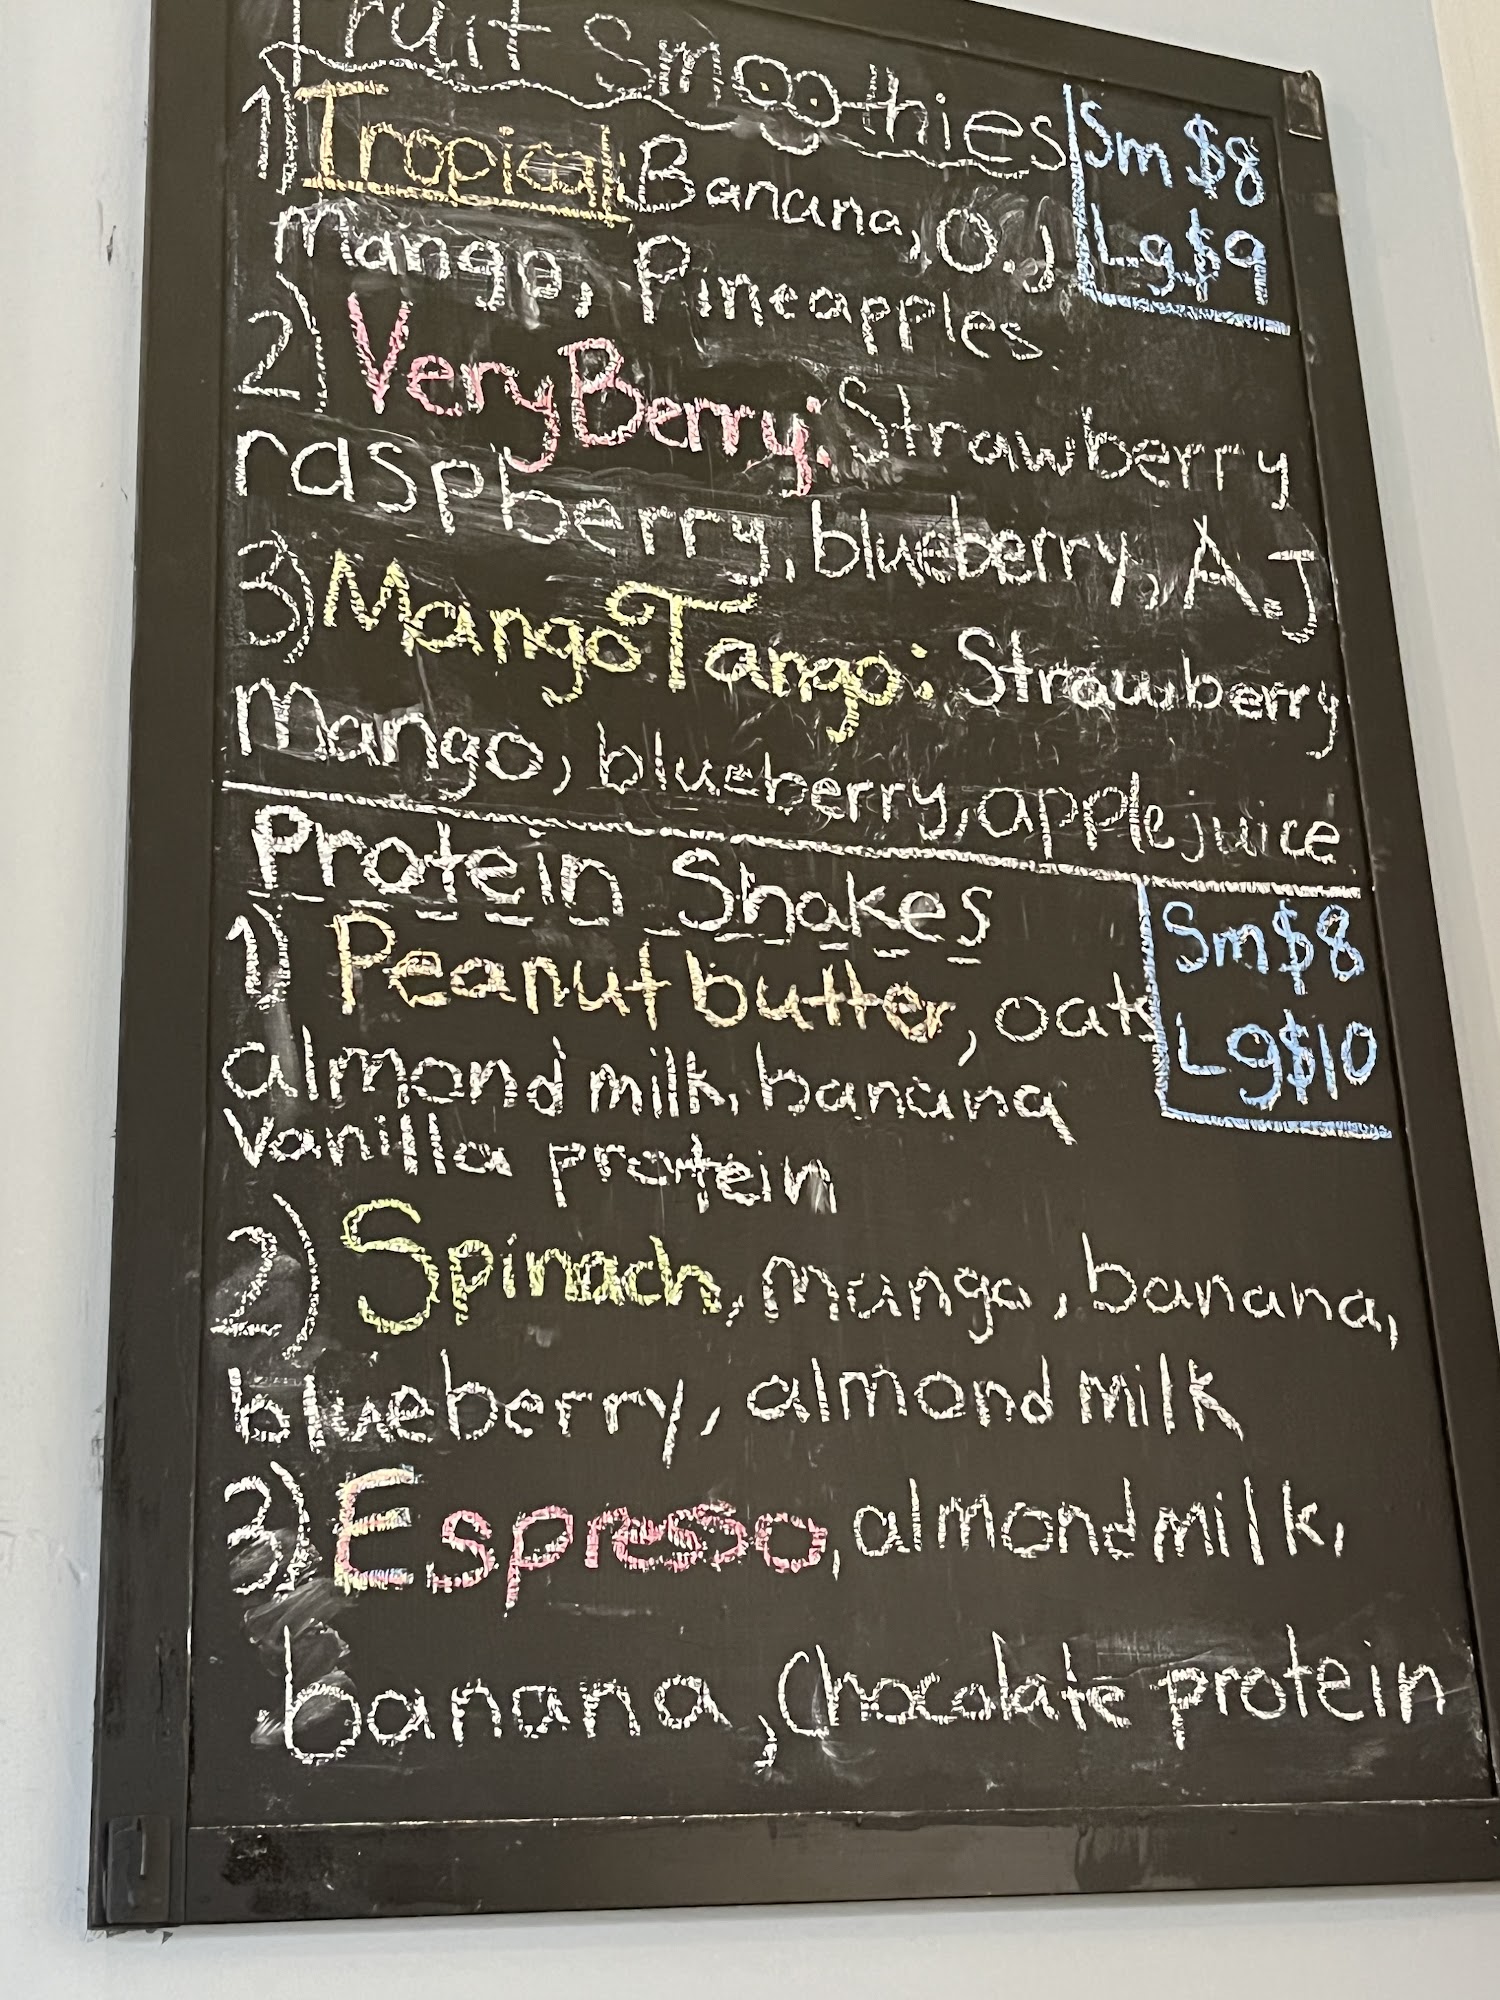 Fruit Smoothies
Sm $8
Lg $9
1) Tropical: Banana, O.J
mango, Pineapples
2) Very Berry: Strawberry
raspberry, blueberry, AJ
3) Mango Tango: Strawberry
mango, blueberry, apple juice
Protein Shakes
Sm $8
Lg $10
1) Peanut butter, oats
almond milk, banana
Vanilla protein
2) Spinach, mango, banana,
blueberry, almond milk
3) Espreso, almond milk,
banana, Chocolate protein